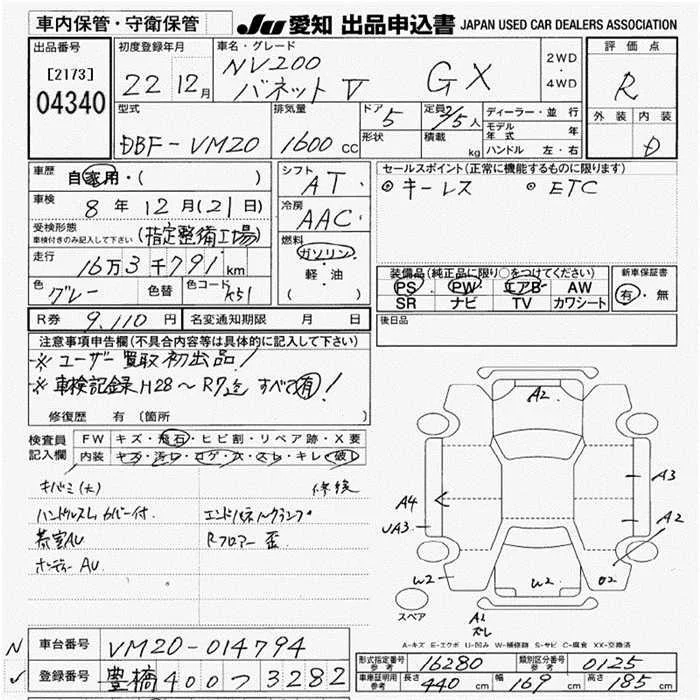 車内保管・守衛保管
JU 愛知 出品申込書 JAPAN USED CAR DEALERS ASSOCIATION
出品番号
[2173]
04340
初度登録年月
22 12月
車名・グレード
NV200
バネットV GX
2WD
・
4WD
評価点
R
外装 内装
D
型式
DBF-VM20
排気量
1600cc
ドア 5
形状
定員 2/5人
積載 kg
ディーラー・並行
モデル年式 年
ハンドル 左・右
車歴
自家用・( )
車検
8年12月(21日)
受検形態
車検付きのみ記入して下さい
(指定整備工場)
走行
16万3千791km
色
グレー
色替
色コード K51
シフト
AT
冷房
AAC
燃料
ガソリン・
軽・油
( )
セールスポイント(正常に機能するものに限ります)
◎キーレス ◎ETC
装備品(純正品に限り○をつけてください)
PS PW エアB AW
SR ナビ TV カワシート
新車保証書
有・無
R券 9,110円
名変通知期限 月 日
後日品
注意事項申告欄(不具合内容等は具体的に記入して下さい)
※ユーザー買取初出品!
※車検記録H28~R7迄すべて有!
修復歴 有(箇所
検査員
記入欄
FW キズ・飛石・ヒビ割・リペア跡・X要
内装 キズ・汚レ・コゲ・穴・スレ・キレ・破レ
キバミ(大) 修後
ハンドルスレカバー付. エンドパネルクランプ
荷室AU Rフロアー歪.
ボディーAU.
A2
A3
A4
UA3
A2
W2
W2
スペア
A1
ズレ
A=キズ E=エクボ U=凹み W=補修跡 S=サビ C=腐食 XX=交換済
N 車台番号 VM20-014794
✓ 登録番号 豊橋400つ3282
形式指定番号
参考
16280
類別区分番号
参考
0125
車庫証明用
参考
長さ 440cm 幅 169cm 高さ 185cm